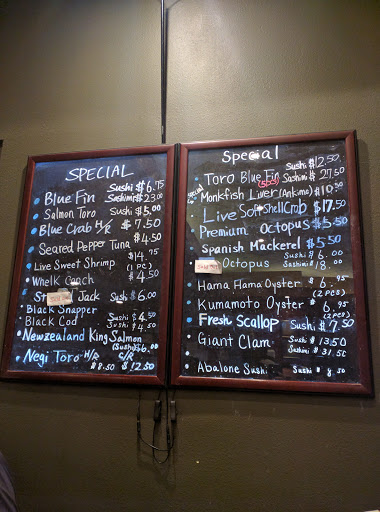 SPECIAL
Blue Fin Sushi $6.75
Sashimi $23.00
Salmon Toro Sushi $5.00
Blue Crab H/R $7.50
Seared Pepper Tuna $4.50
Live Sweet Shrimp $14.95
(1 PC)
Whelk Conch $4.50
Jack Sushi $6.00
Black Snapper Sushi $4.50
Black Cod Sushi $4.50
Newzealand King Salmon
(Sushi) $6.00
Negi Toro H/R C/R
$8.50 $12.50
Special
Toro Blue Fin Sushi $12.50
Sashimi $27.50
Monkfish Liver (Ankimo) $10.50
Live Softshell Crab $17.50
Premium Octopus $5.50
Spanish Mackerel $5.50
Octopus Sushi $6.00
Sashimi $18.00
Hama Hama Oyster $6.95
(2 PCS)
Kumamoto Oyster $6.95
(2 PCS)
Fresh Scallop Sushi $7.50
Giant Clam Sushi $13.50
Sashimi $31.50
Abalone Sushi Sushi $8.50